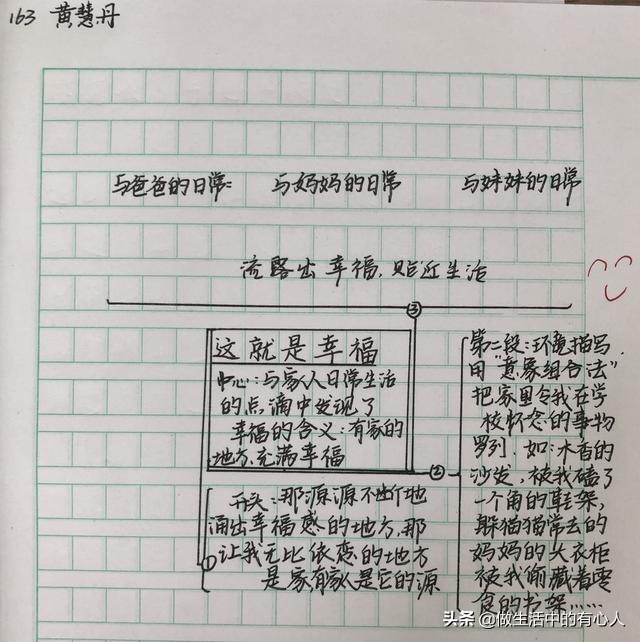 163 黄慧丹
与爸爸的日常: 与妈妈的日常 与妹妹的日常
流露出幸福,贴近生活
③
这就是幸福
中心:与家人日常生活
的点滴中发现了
幸福的含义:有家的
地方,充满幸福
②
第二段:环境描写.
用"意象组合法"
把家里令我在学
校怀念的事物
罗列.如:木香的
沙发,被我磕了
一个角的鞋架,
躲猫猫常去的
妈妈的大衣柜
被我偷藏着零
食的书架……
①
开头:那源源不断地
涌出幸福感的地方,那
让我无比依恋的地方
是家,有家人是它的源
头条 @做生活中的有心人